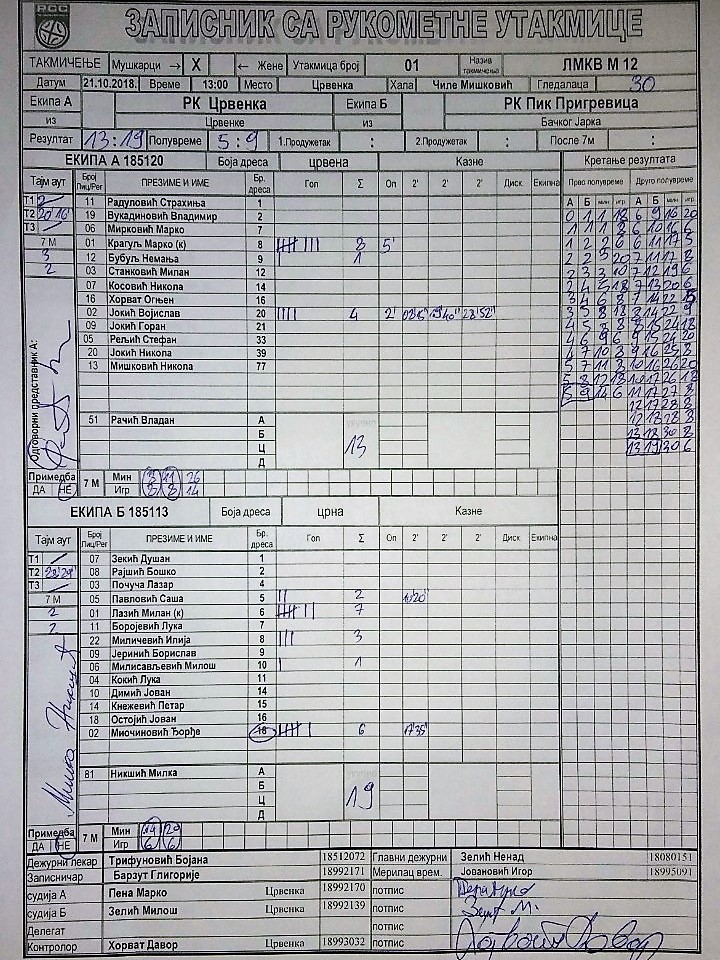 РСС
ЗАПИСНИК СА РУКОМЕТНЕ УТАКМИЦЕ
ТАКМИЧЕЊЕ Мушкарци → X ← Жене Утакмица број 01 Назив такмичења ЛМКВ М 12
Датум 21.10.2018. Време 13:00 Место Црвенка Хала Чиле Мишковић Гледалаца 30
Екипа А РК Црвенка Екипа Б РК Пик Пригревица
из Црвенке из Бачког Јарка
Резултат 13:19 Полувреме 5:9 1.Продужетак : 2.Продужетак : После 7м :
ЕКИПА А 185120 Боја дреса црвена Казне Кретање резултата
Тајм аут Број Лиц/Рег ПРЕЗИМЕ И ИМЕ Бр. дреса Гол Σ Оп 2' 2' 2' Диск. Екипна Прво полувреме Друго полувреме
А Б мин игр А Б мин игр
Т1
Т2 20'16"
Т3
7 М
3
2
11 Радуловић Страхиња 1
19 Вукадиновић Владимир 2
06 Мирковић Марко 7
01 Крагуљ Марко (к) 8 8 5'
12 Бубуљ Немања 9 1
03 Станковић Милан 12
07 Косовић Никола 14
16 Хорват Огњен 16
02 Јокић Војислав 20 4 2' 28'52"
09 Јокић Горан 21
05 Рељић Стефан 33
20 Јокић Никола 39
13 Мишковић Никола 77
0 1 1 18 6 9 16 20
1 1 1 8 6 10 16
1 2 2 6 6 11 17 5
2 2 5 20 7 11 17 8
2 3 3 10 7 12 19 6
2 4 5 18 7 13 20 6
3 4 6 8 7 14 22
3 5 8 18 8 14 22 9
4 5 8 8 15 24 18
4 6 9 6 9 15 24 20
4 7 10 8 9 16 25 8
5 7 11 8 10 16 26 20
5 8 12 18 10 17 26 18
5 9 14 6 11 17 27 8
12 17 28 8
12 18 28 8
13 18 30 8
13 19 30 6
Одговорни представник А:
51 Рачић Владан А
Б
Ц
Д
13
Примедба ДА НЕ 7 М Мин 3 11 26
Игр 8 8 14
ЕКИПА Б 185113 Боја дреса црна Казне
Тајм аут Број Лиц/Рег ПРЕЗИМЕ И ИМЕ Бр. дреса Гол Σ Оп 2' 2' 2' Диск. Екипна
Т1
Т2
Т3
7 М
2
2
07 Зекић Душан 1
08 Рајшић Бошко 2
03 Почуча Лазар 4
05 Павловић Саша 5 2 20"
01 Лазић Милан (к) 6 7
11 Боројевић Лука 7
22 Миличевић Илија 8 3
09 Јеринић Борислав 9
06 Милисављевић Милош 10 1
04 Кокић Лука 11
10 Димић Јован 14
14 Кнежевић Петар 15
18 Остојић Јован 16
02 Миочиновић Ђорђе 18 6 17'35"
81 Никшић Милка А
Б
Ц
Д
19
Милка Никшић
Примедба ДА НЕ 7 М Мин 14 20
Игр 6 6
Дежурни лекар Трифуновић Бојана 18512072 Главни дежурни Зелић Ненад 18080151
Записничар Барзут Глигорије 18992171 Мерилац врем. Јовановић Игор 18995091
судија А Пена Марко Црвенка 18992170 потпис
судија Б Зелић Милош Црвенка 18992139 потпис
Делегат потпис
Контролор Хорват Давор Црвенка 18993032 потпис